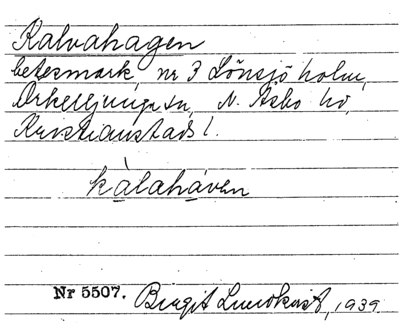 Kalvahagen
betesmark nr 3 Lönsjöholm,
Örkelljunga sn, N. Åsbo hd,
Kristianstads l.
kàlahávен
Nr 5507. Birgit Lundkvist, 1939.